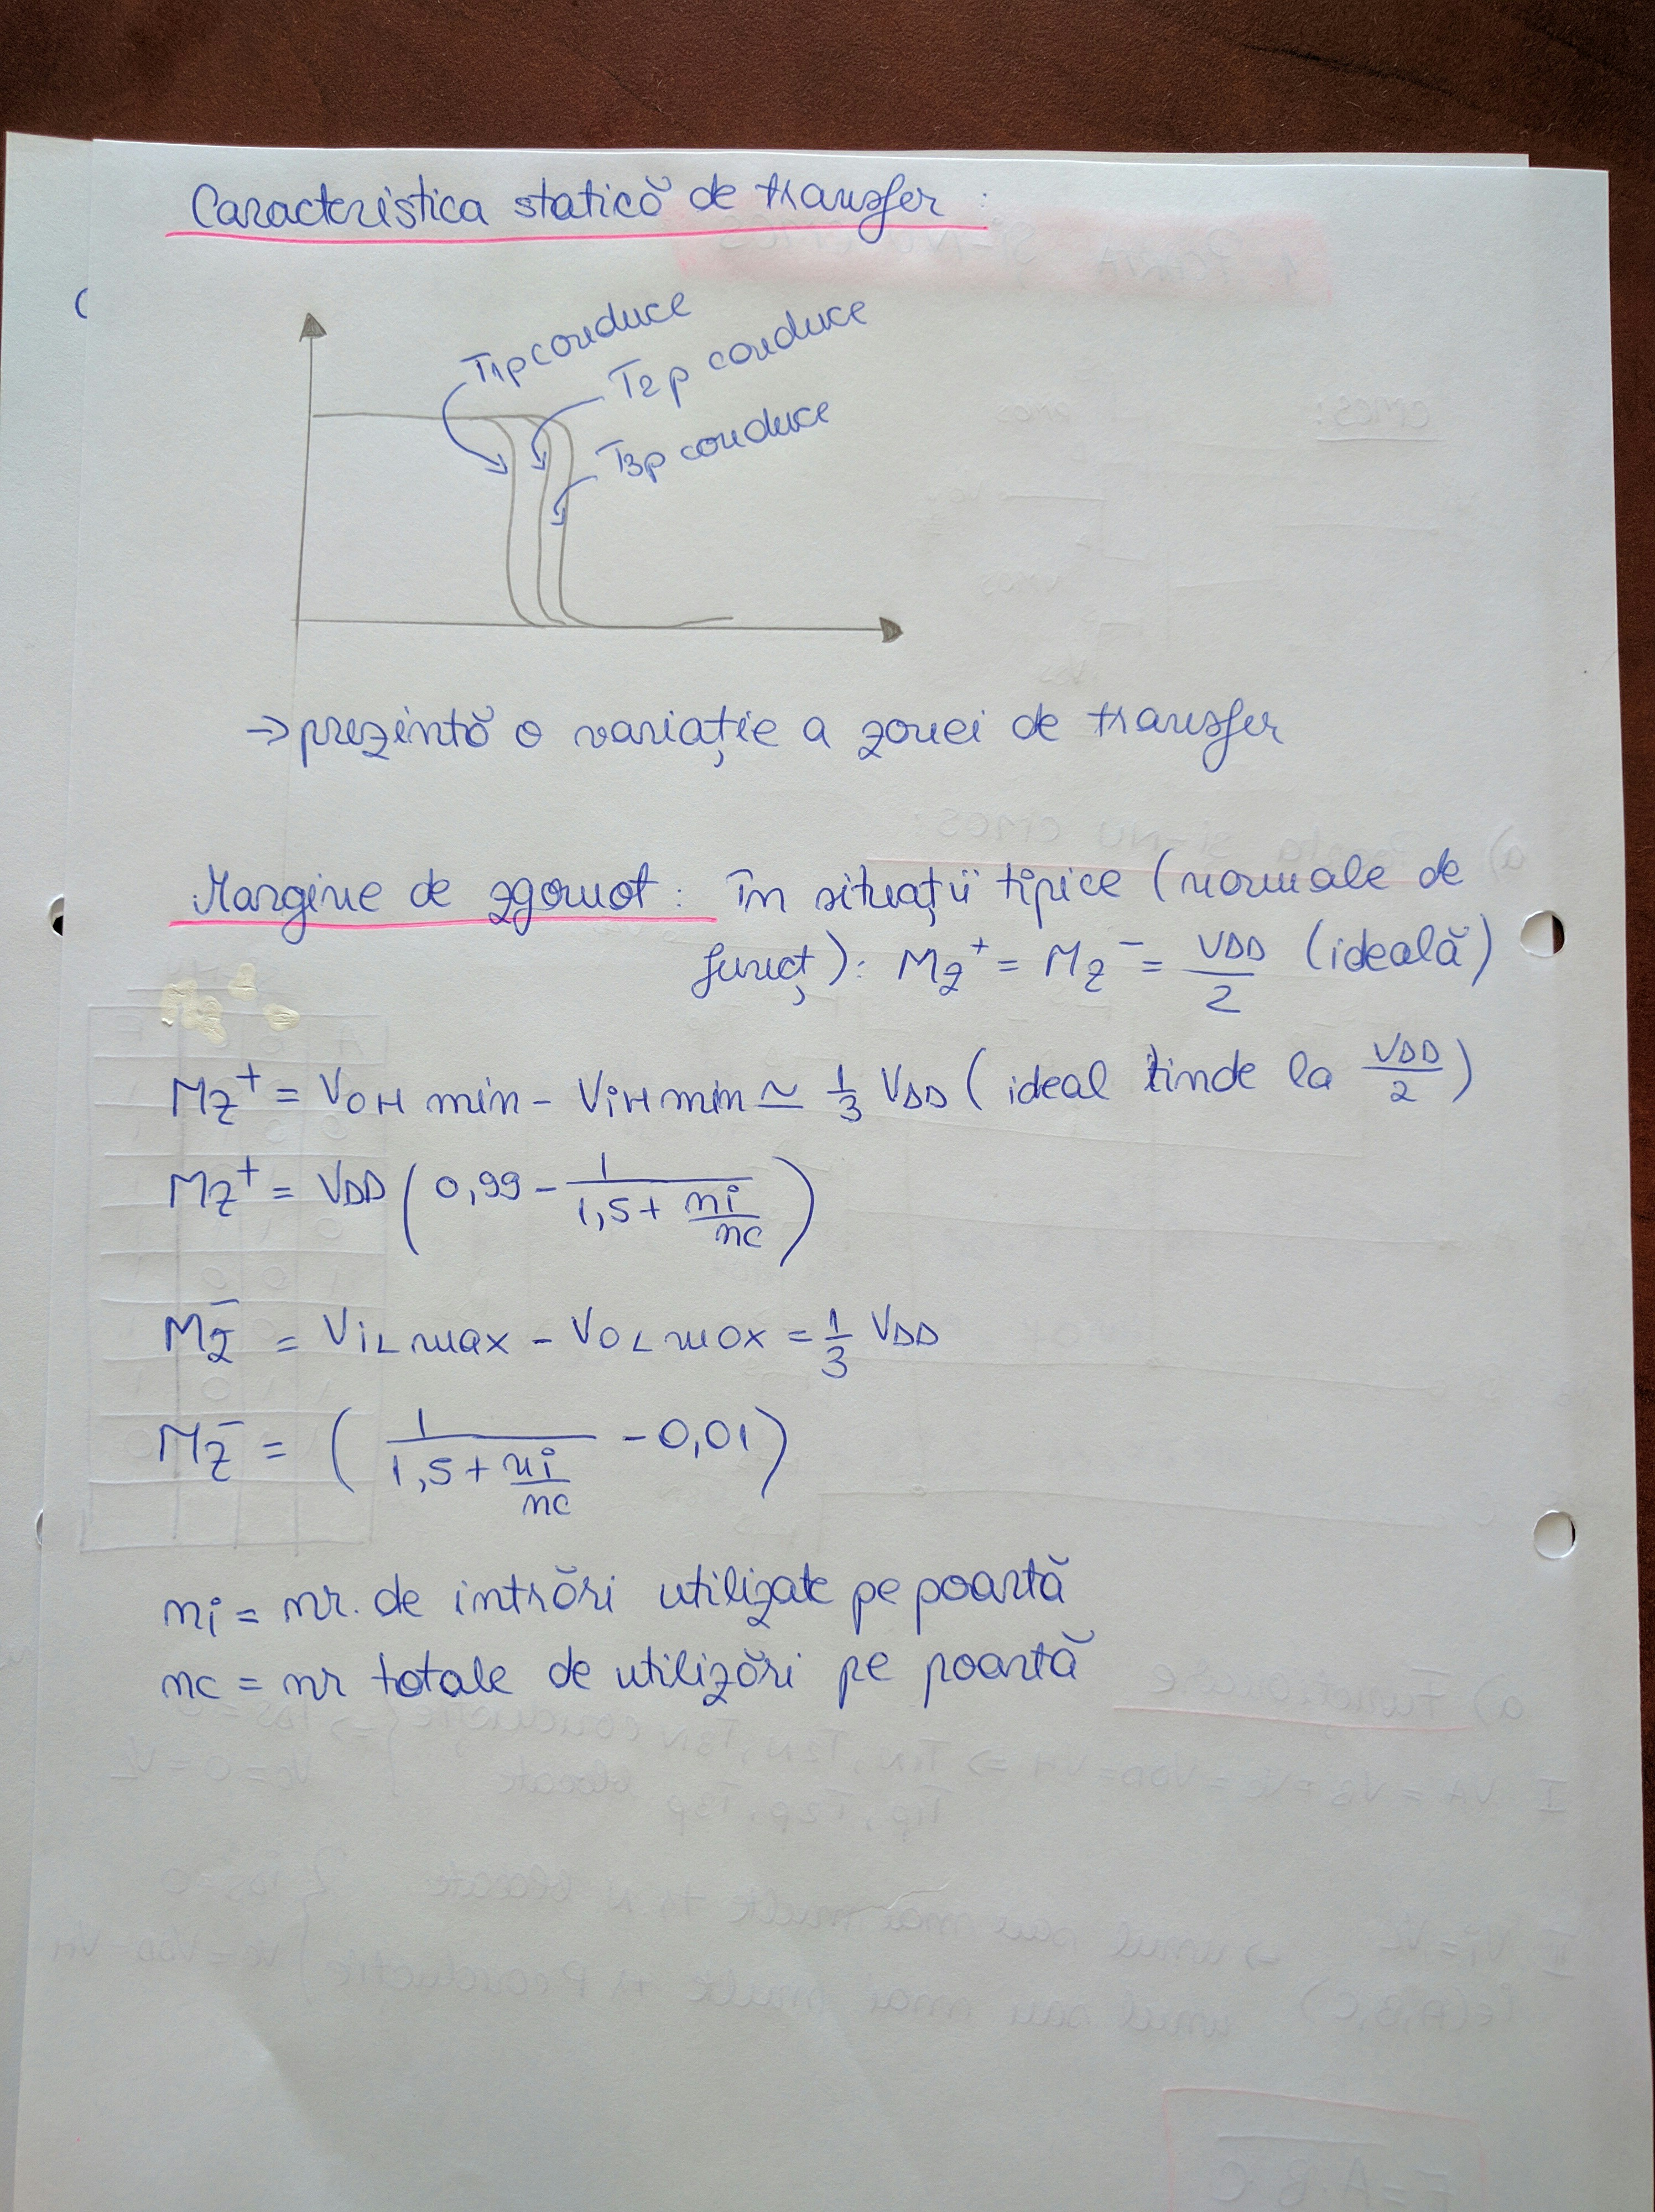 Caracteristica statică de transfer :
T1p conduce
T2p conduce
T3p conduce
→ prezintă o variație a zonei de transfer
Margine de zgomot : în situații tipice (normale de
funcț) : Mz⁺ = Mz⁻ = VDD/2 (ideală)
Mz⁺ = VOH min - ViH min ≃ 1/3 VDD ( ideal tinde la VDD/2 )
Mz⁺ = VDD ( 0,99 - 1/(1,5 + ni/nc) )
Mz⁻ = ViL max - VOL max = 1/3 VDD
Mz⁻ = ( 1/(1,5 + ni/nc) - 0,01 )
ni = nr. de intrări utilizate pe poartă
nc = nr totale de utilizări pe poartă